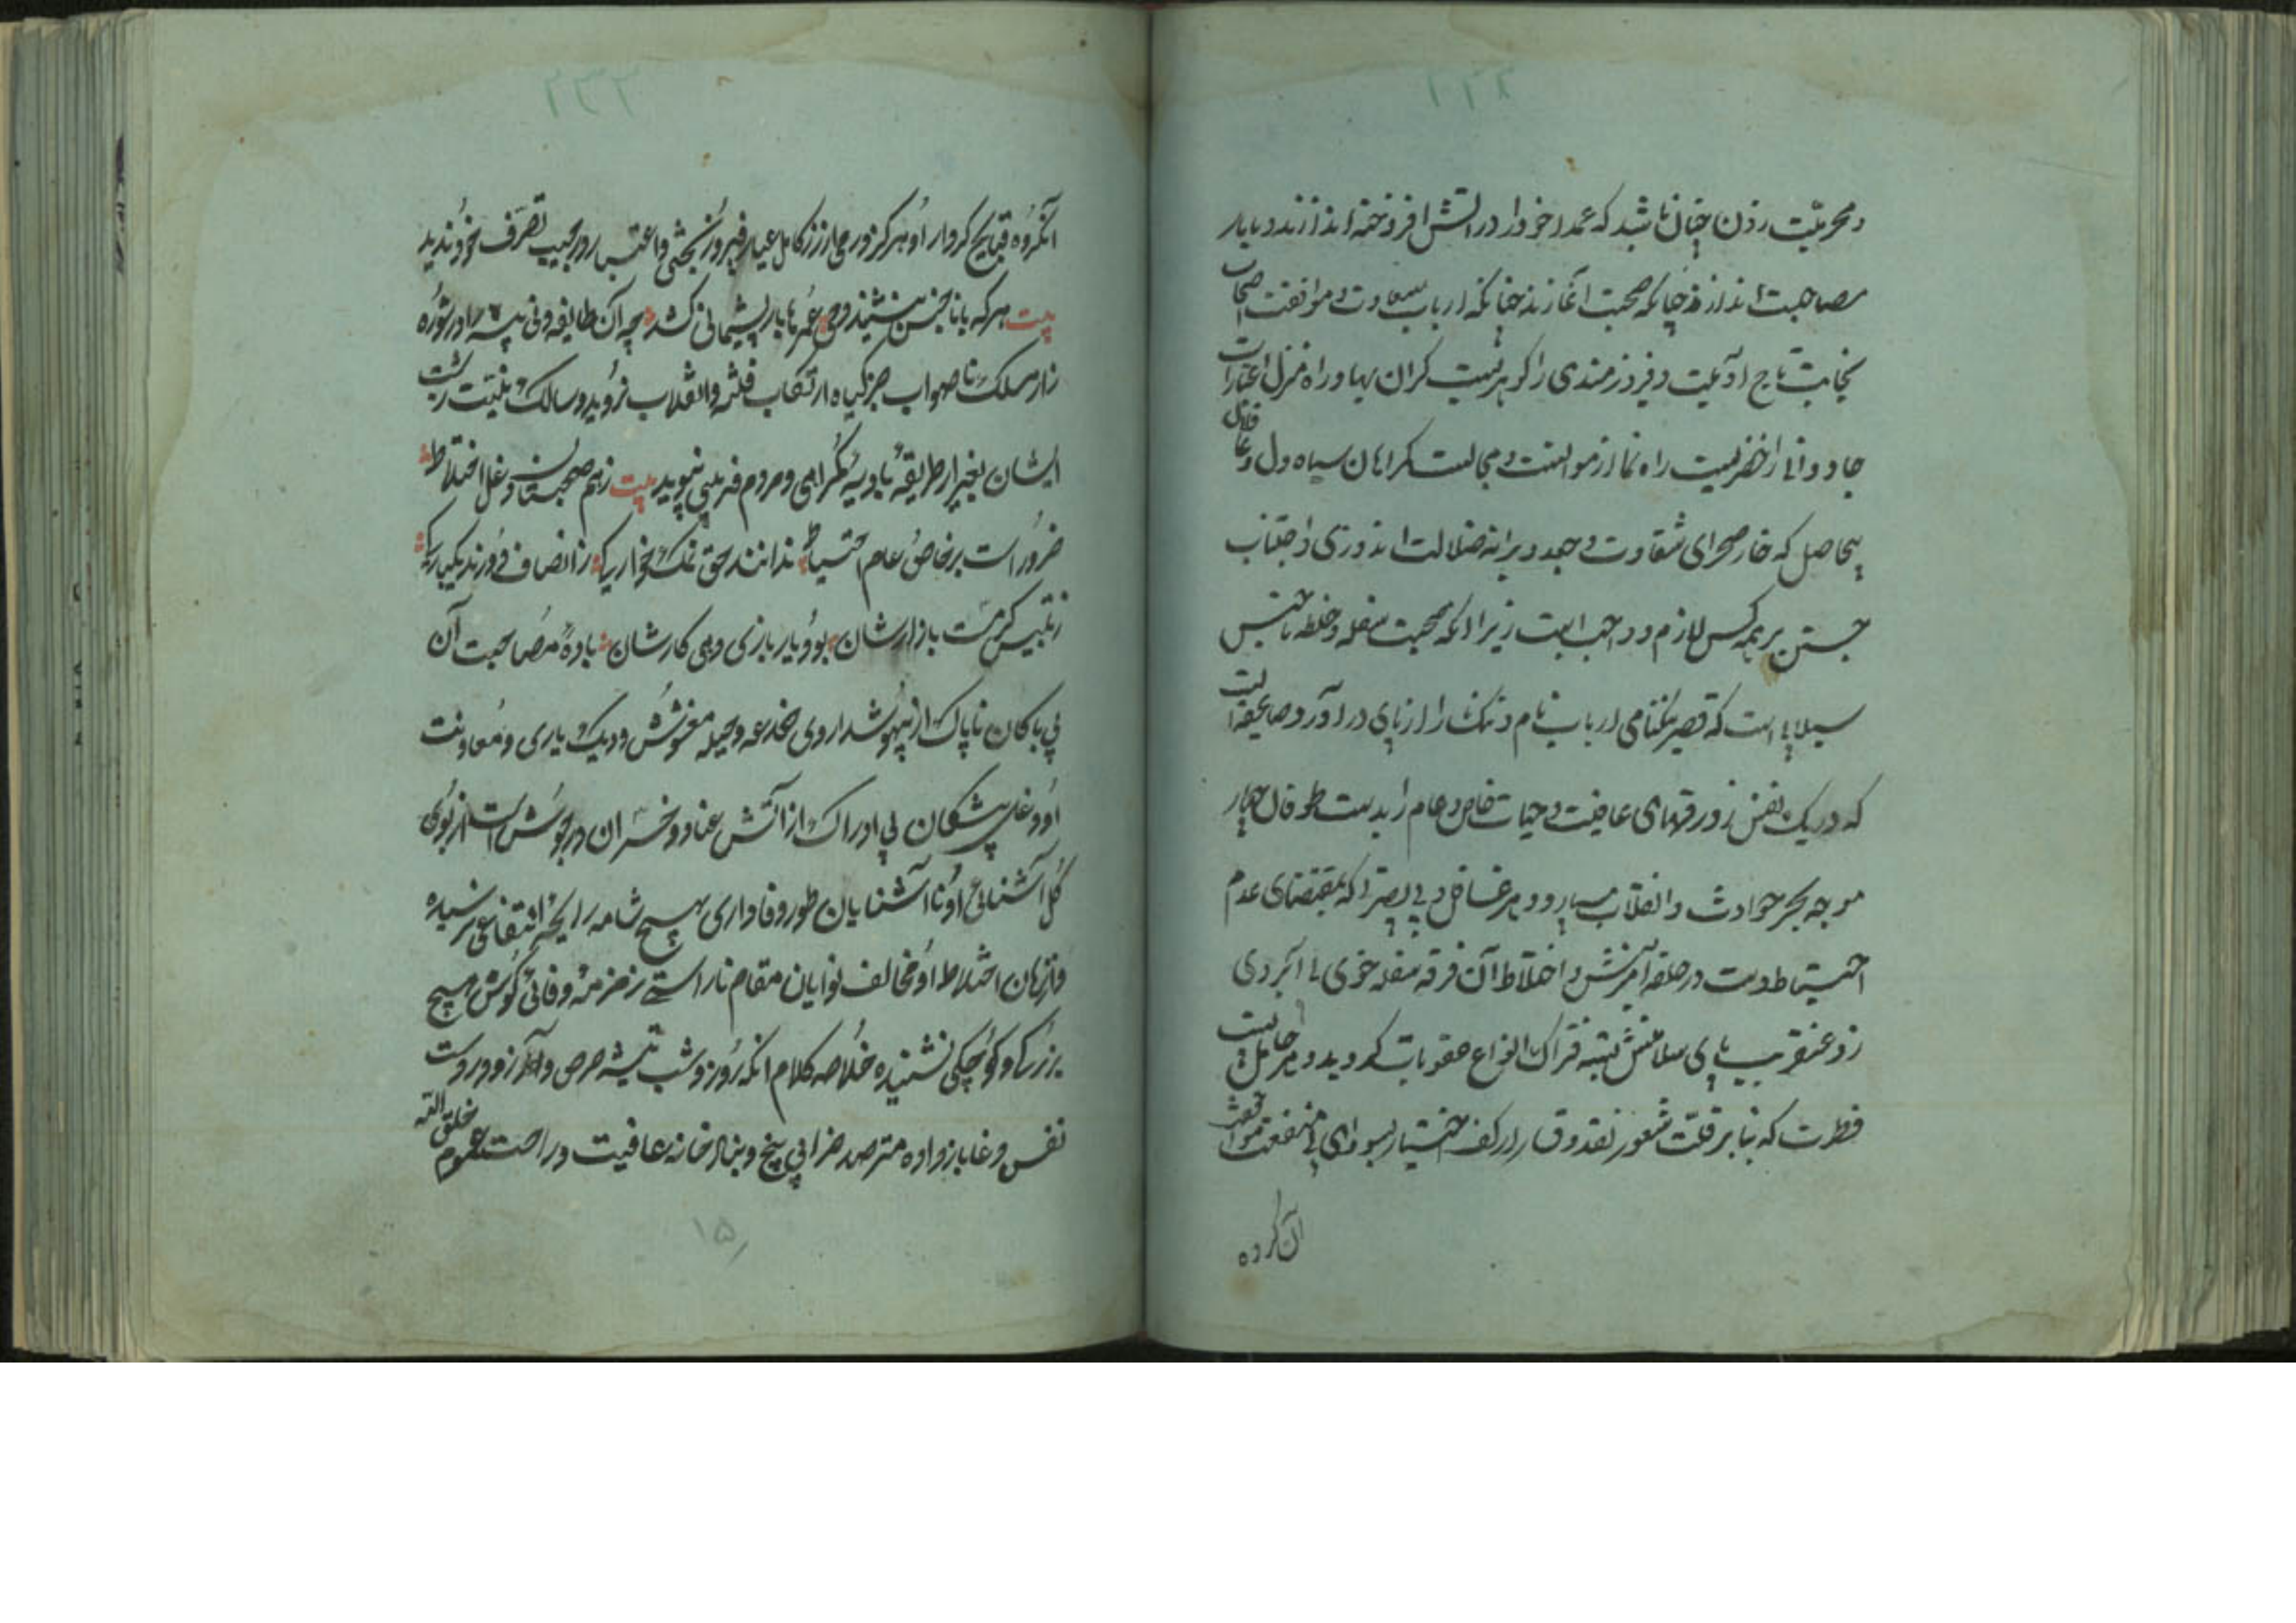 و محرمیّت زدن چنان باشد که عمداً خود را در آتش افروخته اندازند و با یار
مصاحبت اندازند چنانکه صحبت آغازند چنانکه ارباب سعادت و موافقت اصحاب
نجابت تاج آدمیت و فیروزمندی را گوهریست گران بها و راه منزل اعتبارات
جاودانی را خضریست راه نما از موانست و مجالست گمراهان سیاه دل و غافلان
بیحاصل که خار صحرای شقاوت و جغد ویرانه ضلالت اند دوری و اجتناب
جستن بر همه کس لازم و واجب است زیرا که صحبت سفله و خلطه ناجنس
سیلابی است که قصر نیکنامی ارباب نام و ننگ را از پای در آورد و صاعقه ایست
که در یک نفس زورقهای عافیت و حیات خاص و عام را بدست طوفان
موجه بحر حوادث و انقلاب سپارد و هر غافل و بی بصر که بمقتضای عدم
احتیاط دست در حلقه آمیزش و اختلاط آن فرقه سفله خوی بی آبروی
زد عنقریب پای سلامتش بسته فتراک انواع عقوبات گردید و هر جاهل پست
فطرت که بنا بر قلّت شعور نقد وقار از کف اختیار بسودای بی منفعت موافقت
آن کرده
آنگروه قبایح کردار او هرگز زر کامل عیار فیروز بختی و اعتبار در جیب تصرف خود ندید
بیت هر که با ناجنس بنشیند دمی عمرها بار پشیمانی کشد چه آن طایفه دنی پیشه را در شوره
زار مسلک ناصواب جز گیاه ارتکاب فتنه و انقلاب نروید و سالک نیّت زشت
ایشان بغیر از طریقه بادیه گمراهی و مردم فریبی نپوید بیت زهم صحبتان دغل اختلاط
ضرور است بر خاص و عام احتیاط ندانند حق نمک خوارگی ز انصاف دورند یکبارگی
ز تلبیس گرمست بازارشان بود یار بازی دهی کارشان باده مصاحبت آن
بی باکان ناپاک از بیهوشداروی خدعه و حیله مغشوش و دیک یاری و معاونت
او دغل پیشگان بی ادراک از آتش عناد و خسران در جوش است از بوی
گل آشنائی او ناآشنایان طور وفاداری هیچ شامه رایحه انتفاعی نرسیده
و از زبان اختلاط او مخالف نوایان مقام ناراستی زمزمه وفائی گوش هیچ
بزرگ و کوچکی نشنیده خلاصه کلام انکه روز و شب تیشه حرص و آز در دست
نفس دغا باز داده مترصد خرابی بیخ و بنیاد خانه عافیت و راحت عموم خلق الله
۱۵